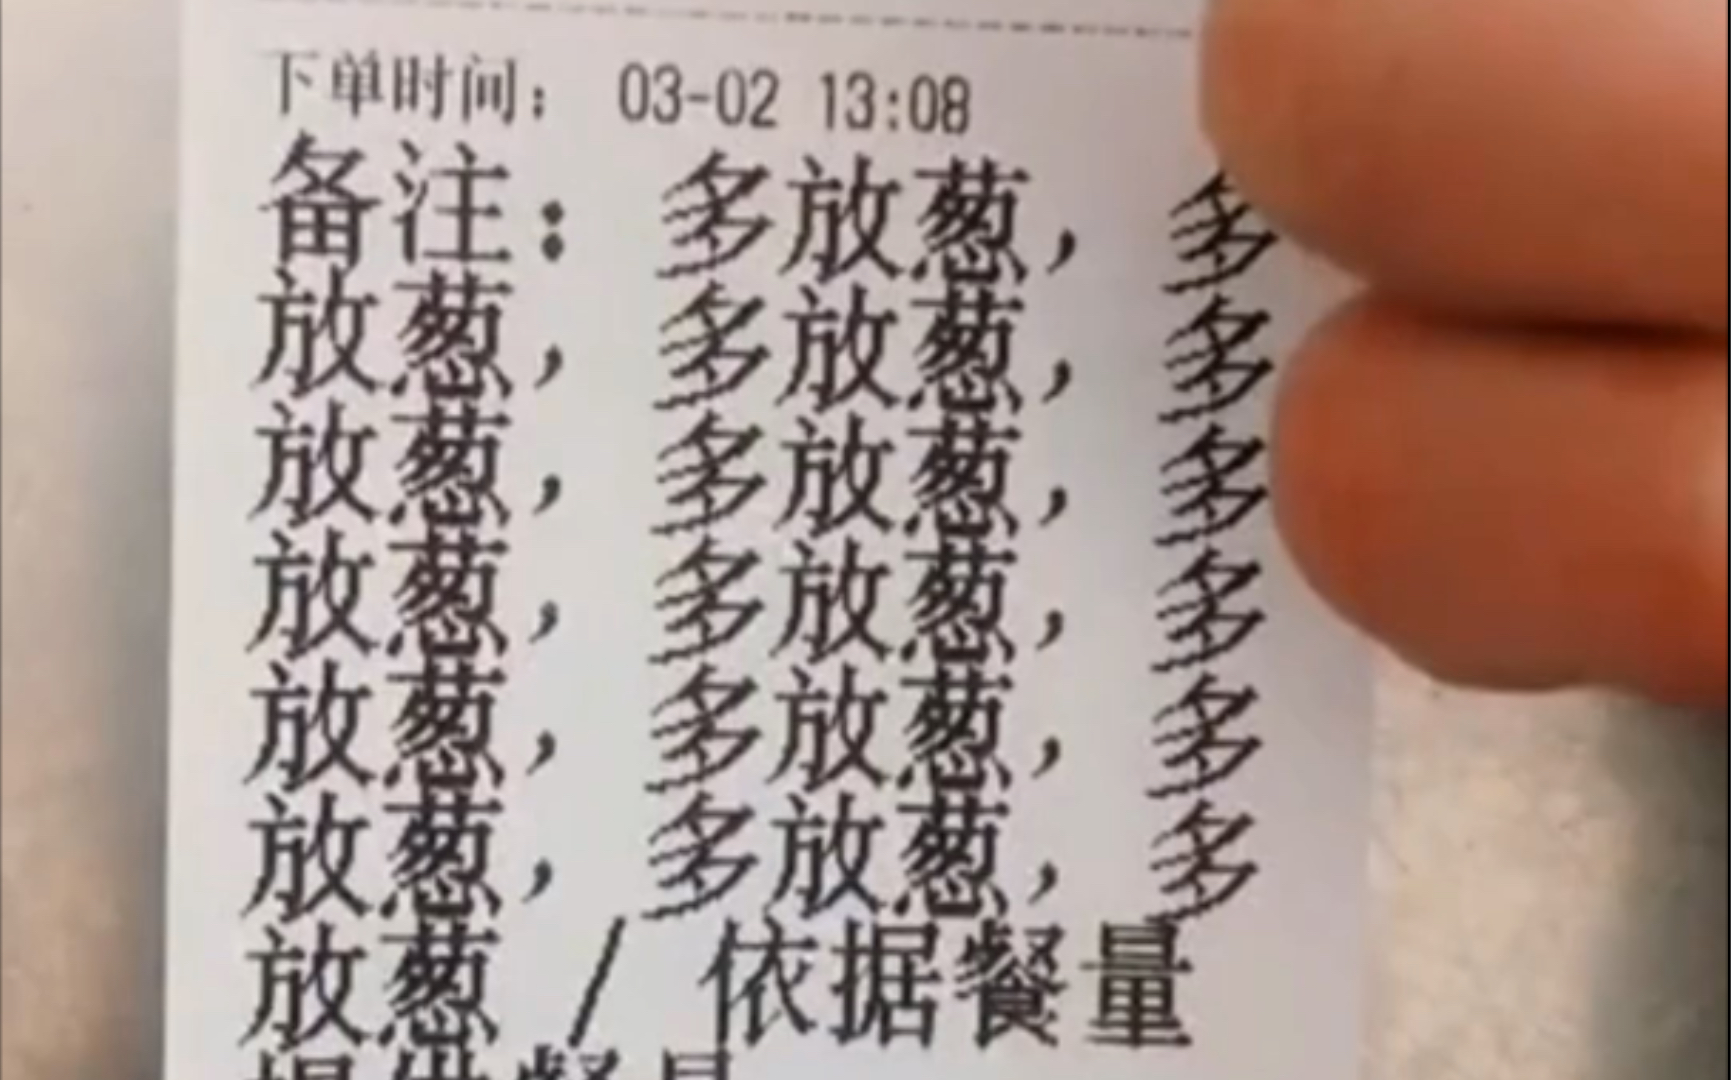 下单时间： 03-02 13:08
备注： 多放葱， 多
放葱， 多放葱， 多
放葱， 多放葱， 多
放葱， 多放葱， 多
放葱， 多放葱， 多
放葱， 多放葱， 多
放葱 / 依据餐量
提供餐具